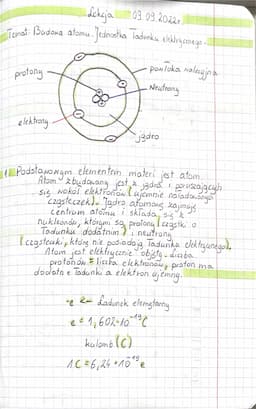 Lekcja 09.09.2022r.
Temat: Budowa atomu. Jednostka Ładunku elektrycznego.
protony
powłoka walencyjna
Neutrony
elektrony
jądro
1. Podstawowym elementem materi jest atom.
Atom zbudowany jest z jądra i poruszających
się wokół elektronów (ujemnie naładowanych
cząsteczek). Jądro atomowe zajmuje
centrum atomu i składa się z
nukleonów, którymi są protony (cząstki o
Ładunku dodatnim) i neutrony
(cząsteczki, które nie posiadają Ładunku elektrycznego).
Atom jest elektrycznie objęty. Liczba
protonów = liczba elektronów, proton ma
dodatni Ładunek a elektron ujemny.
-e e- Ładunek elemetarny
e = 1,602·10⁻¹⁹ C
kulomb (C)
1C = 6,24·10¹⁸ e